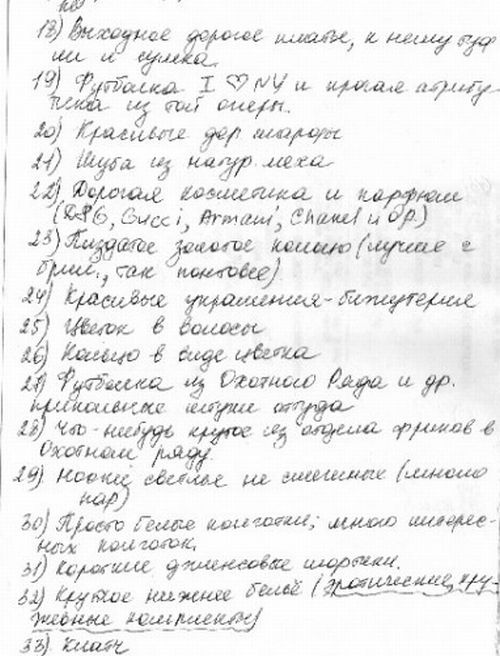 18) Выходное дорогое платье, к нему туф
ли и сумка.
19) Футболка I ♡ NY и прочая атрибу-
тика из той оперы.
20) Красивые дор. шарфы
21) Шуба из натур. меха
22) Дорогая косметика и парфюм
(D&G, Gucci, Armani, Chanel и др.)
23) Пиздатое золотое кольцо (лучше с
брил., так понтовее)
24) Красивые украшения-бижутерия
25) Цветок в волосы
26) Кольцо в виде цветка
27) Футболка из Охотного Ряда и др.
прикольные штуки оттуда
28) Что-нибудь крутое из отдела фриков в
Охотном ряду.
29) Носки светлые не смешные (много
пар)
30) Просто белые колготки; много интерес-
ных колготок.
31) Короткие джинсовые шортики.
32) Крутое нижнее бельё (эротические, кру-
жевные комплекты)
33) Клатч